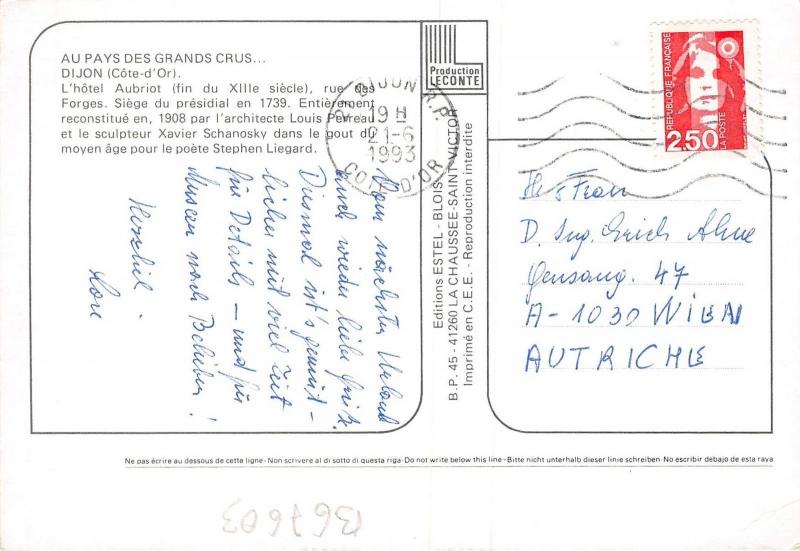 AU PAYS DES GRANDS CRUS...
DIJON (Côte-d'Or).
L'hôtel Aubriot (fin du XIIIe siècle), rue des
Forges. Siège du présidial en 1739. Entièrement
reconstitué en, 1908 par l'architecte Louis Perreau
et le sculpteur Xavier Schanosky dans le gout du
moyen âge pour le poète Stephen Liegard.
Production
LECONTE
DIJON R.P.
19 H
21-6
1993
COTE D'OR
RÉPUBLIQUE FRANÇAISE
2,50
LA POSTE
Vom nächsten Urlaub
auch wieder liebe Grüße.
Diesmal ist's gemüt-
licher mit viel Zeit
für Details – und für
Museen nach Belieben!
Herzlich
Lore
Editions ESTEL - BLOIS
B.P. 45 - 41260 LA CHAUSSEE-SAINT-VICTOR
Imprimé en C.E.E. - Reproduction interdite
D. Ing. Erich
47
A-1030 WIEN
AUTRICHE
Ne pas écrire au dessous de cette ligne - Non scrivere al di sotto di questa riga - Do not write below this line - Bitte nicht unterhalb dieser linie schreiben - No escribir debajo de esta raya
B67603